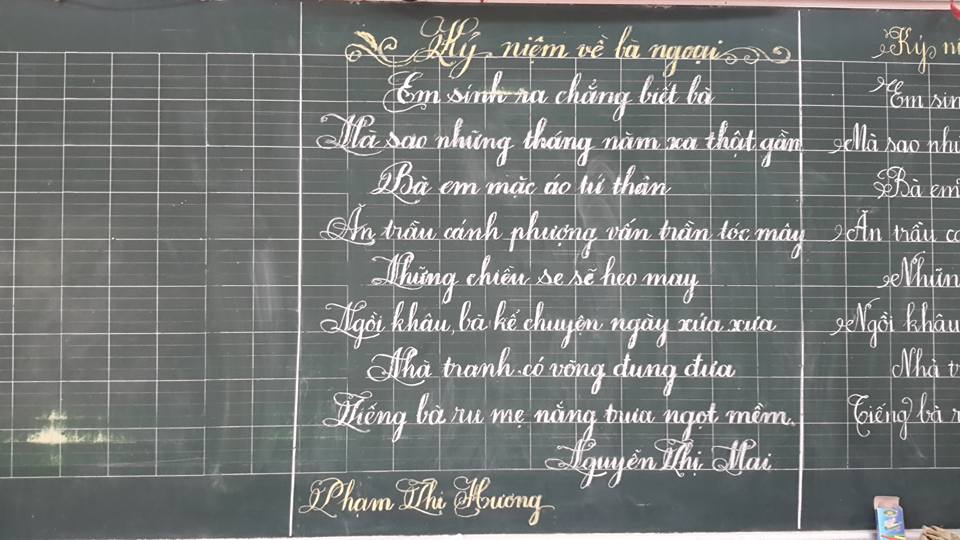 Kỷ niệm về bà ngoại
Em sinh ra chẳng biết bà
Mà sao những tháng năm xa thật gần
Bà em mặc áo tứ thân
Ăn trầu cánh phượng vấn trần tóc mây
Những chiều se sẽ heo may
Ngồi khâu, bà kể chuyện ngày xửa xưa
Nhà tranh có võng đung đưa
Tiếng bà ru mẹ nắng trưa ngọt mềm.
Nguyễn Thị Mai
Phạm Thị Hương
Kỷ
Em
Mà sao
Bà em
Ăn trầu
Ngồi khâu
Nhà
Tiếng bà